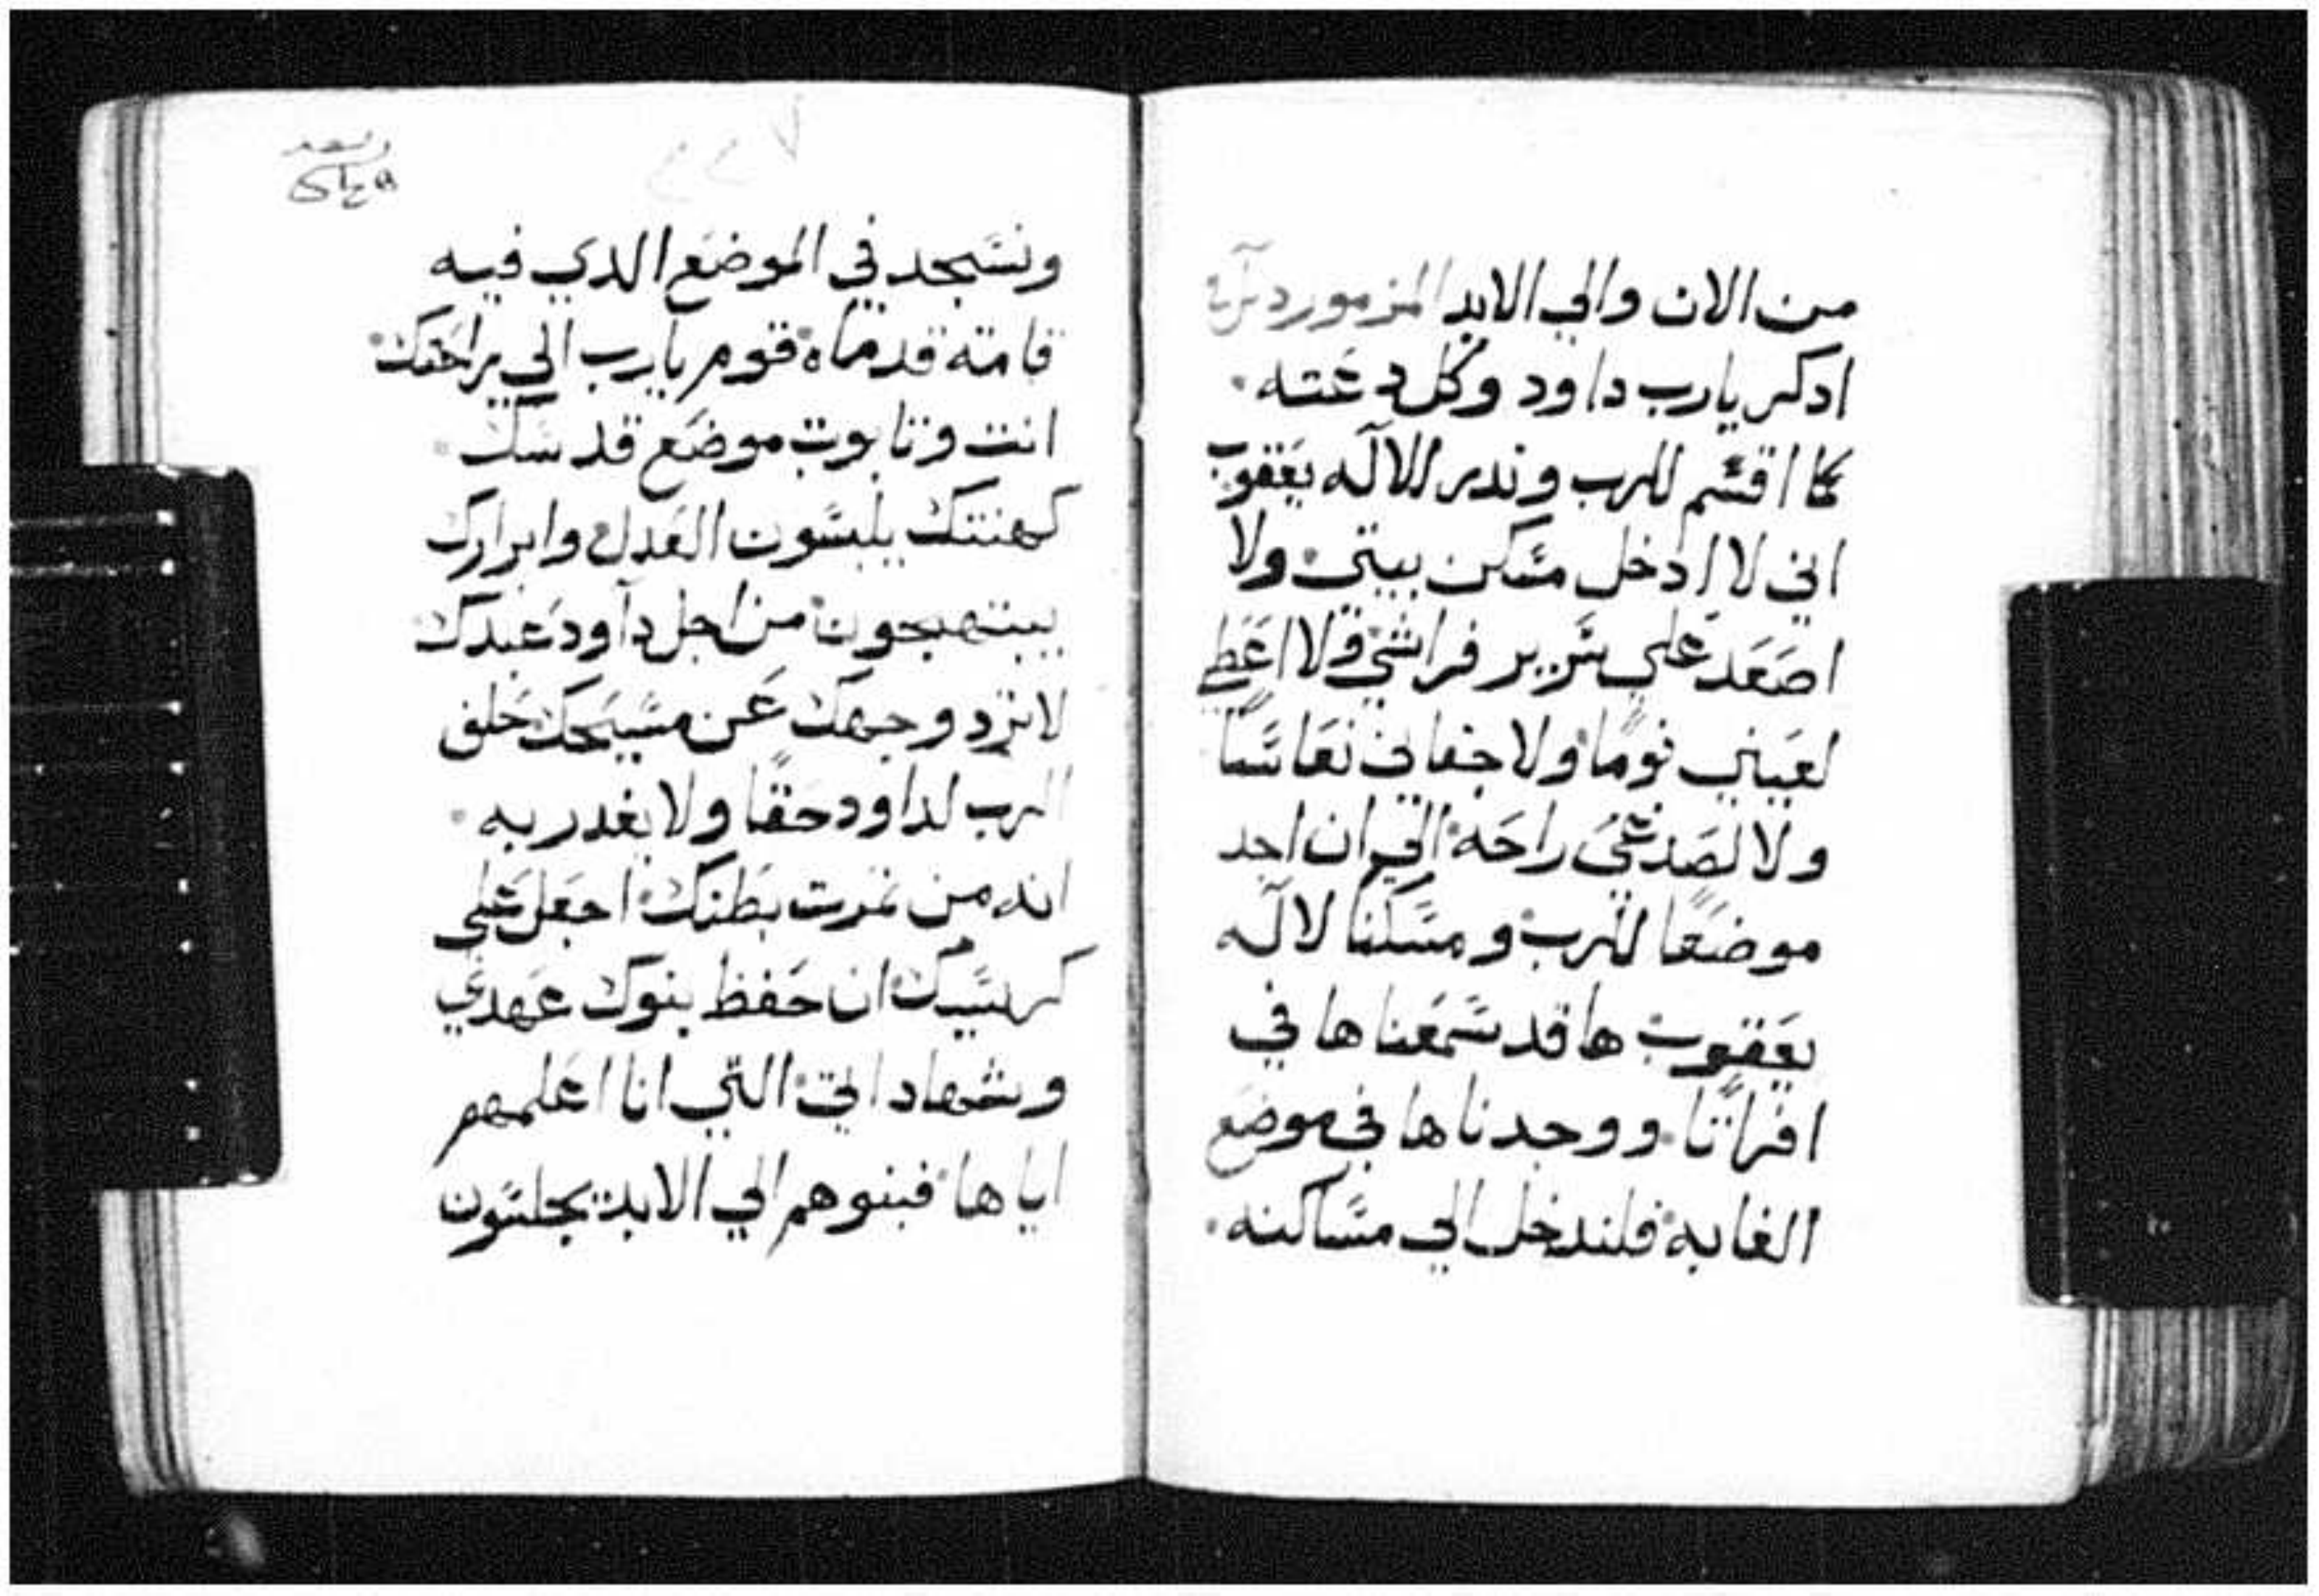 من الان والي الابد المزمور
ادكر يارب داود وكل دعته
كما اقسم للرب وندر للاله يعقوب
اني لا ادخل مسكن بيتي ولا
اصعد علي سرير فراشي ولا اعطي
لعيني نومًا ولا جفاني نعاسًا
ولا لصدغي راحه الي ان اجد
موضعًا للرب ومسكنا لاله
يعقوب ها قد سمعناها في
افراتا ووجدناها في موضع
الغابه فلندخل الي مساكنه
ونسجد في الموضع الدي فيه
قامته قدماه قوم يارب الي راحتك
انت وتابوت موضع قدسك
كهنتك يلبسون العدل وابرارك
يبتهجون من اجل داود عبدك
لا ترد وجهك عن مسيحك حلف
الرب لداود حقًا ولا يغدر به
انه من تمرت بطنك اجعل علي
كرسيك ان حفظ بنوك عهدي
وشهاداتي التي انا اعلمهم
اياها فبنوهم الي الابد يجلسون